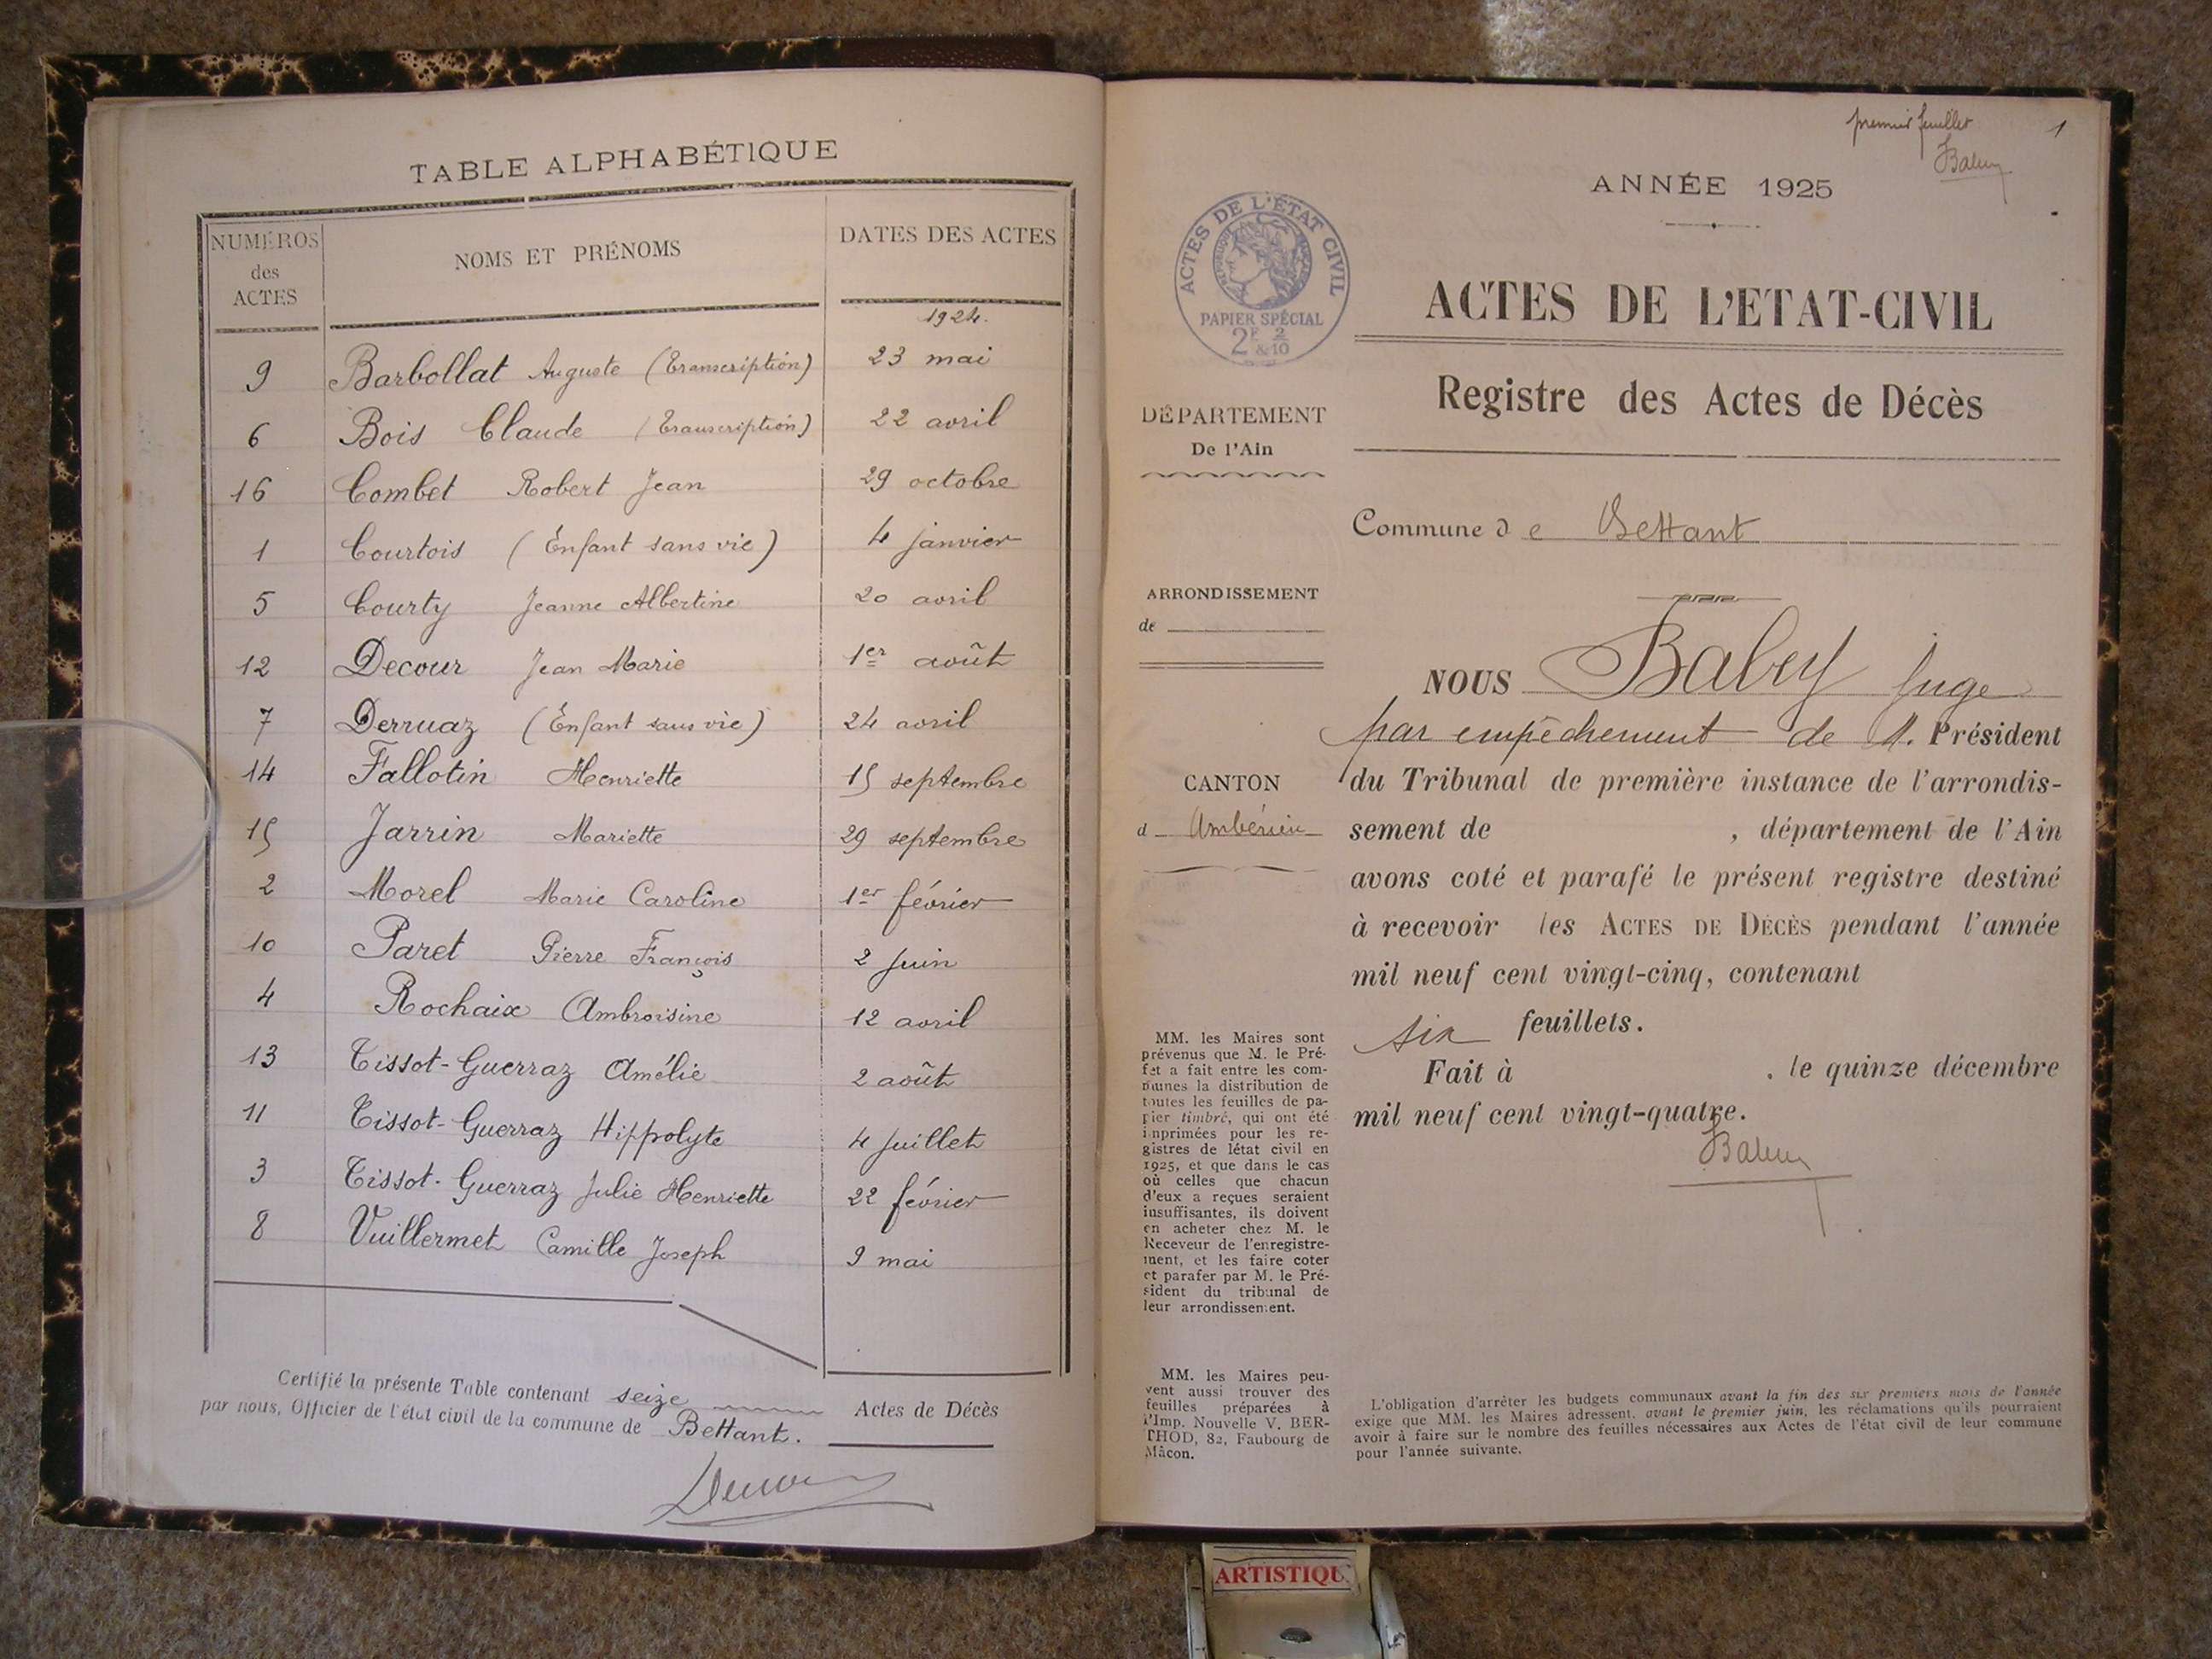 TABLE ALPHABÉTIQUE
NUMÉROS des ACTES NOMS ET PRÉNOMS DATES DES ACTES
1924.
9 Barbollat Auguste (Transcription) 23 mai
6 Bois Claude (Transcription) 22 avril
16 Combet Robert Jean 29 octobre
1 Courtois (Enfant sans vie) 4 janvier
5 Courty Jeanne Albertine 20 avril
12 Decour Jean Marie 1er août
7 Derruaz (Enfant sans vie) 24 avril
14 Fallotin Henriette 15 septembre
15 Jarrin Mariette 29 septembre
2 Morel Marie Caroline 1er février
10 Paret Pierre François 2 juin
4 Rochaix Ambroisine 12 avril
13 Tissot-Guerraz Amélie 2 août
11 Tissot-Guerraz Hippolyte 4 juillet
3 Tissot-Guerraz Julie Henriette 22 février
8 Vuillermet Camille Joseph 9 mai
Certifié la présente Table contenant seize Actes de Décès
par nous, Officier de l'état civil de la commune de Bettant.
premier feuillet 1
ANNÉE 1925
ACTES DE L'ÉTAT CIVIL
RÉPUBLIQUE FRANÇAISE
PAPIER SPÉCIAL
2F 2
&10
ACTES DE L'ETAT-CIVIL
Registre des Actes de Décès
DÉPARTEMENT
De l'Ain
Commune de Bettant
ARRONDISSEMENT
de
CANTON
d Ambérieu
NOUS Juge
par empêchement de M. Président
du Tribunal de première instance de l'arrondis-
sement de , département de l'Ain
avons coté et parafé le présent registre destiné
à recevoir les ACTES DE DÉCÈS pendant l'année
mil neuf cent vingt-cinq, contenant
six feuillets.
Fait à , le quinze décembre
mil neuf cent vingt-quatre.
MM. les Maires sont
prévenus que M. le Pré-
fet a fait entre les com-
munes la distribution de
toutes les feuilles de pa-
pier timbré, qui ont été
imprimées pour les re-
gistres de létat civil en
1925, et que dans le cas
où celles que chacun
d'eux a reçues seraient
insuffisantes, ils doivent
en acheter chez M. le
Receveur de l'enregistre-
ment, et les faire coter
et parafer par M. le Pré-
sident du tribunal de
leur arrondissement.
MM. les Maires peu-
vent aussi trouver des
feuilles préparées à
l'Imp. Nouvelle V. BER-
THOD, 82, Faubourg de
Mâcon.
L'obligation d'arrêter les budgets communaux avant la fin des six premiers mois de l'année
exige que MM. les Maires adressent, avant le premier juin, les réclamations qu'ils pourraient
avoir à faire sur le nombre des feuilles nécessaires aux Actes de l'état civil de leur commune
pour l'année suivante.
ARTISTIQU